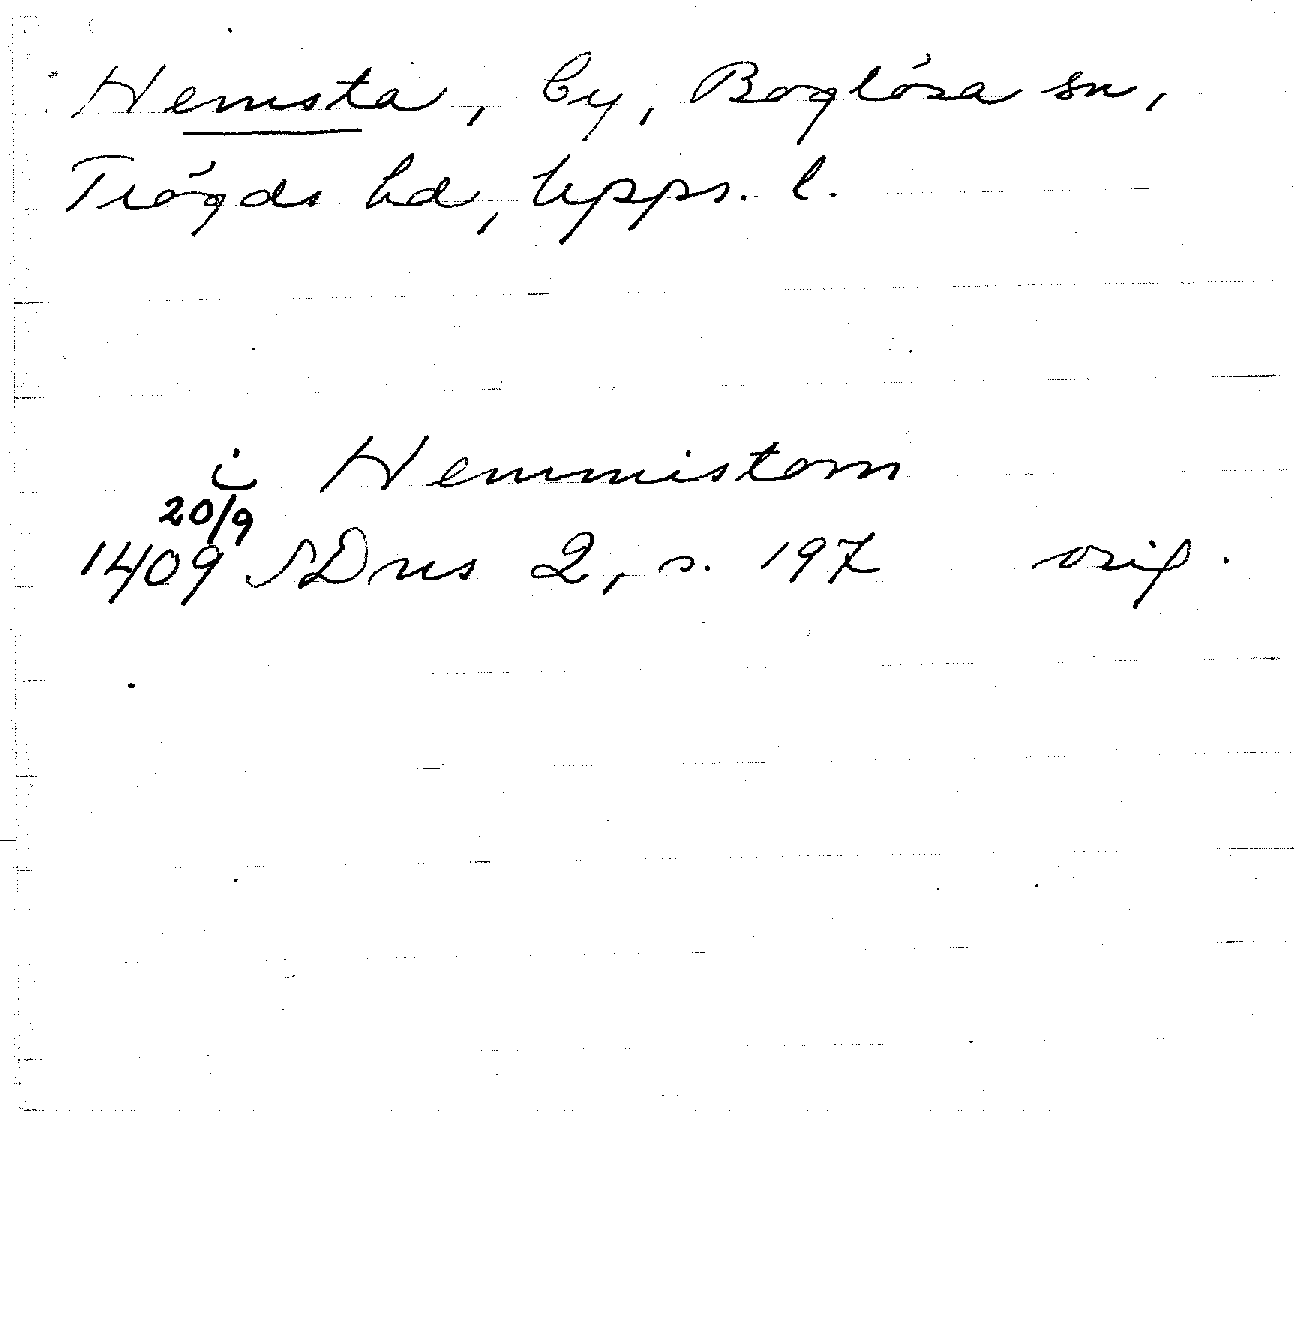 Hemsta, by, Boglösa sn,
Trögds hd, Upps. l.
i Hemmistom
20/9
1409 SDns 2, s. 197 orig.